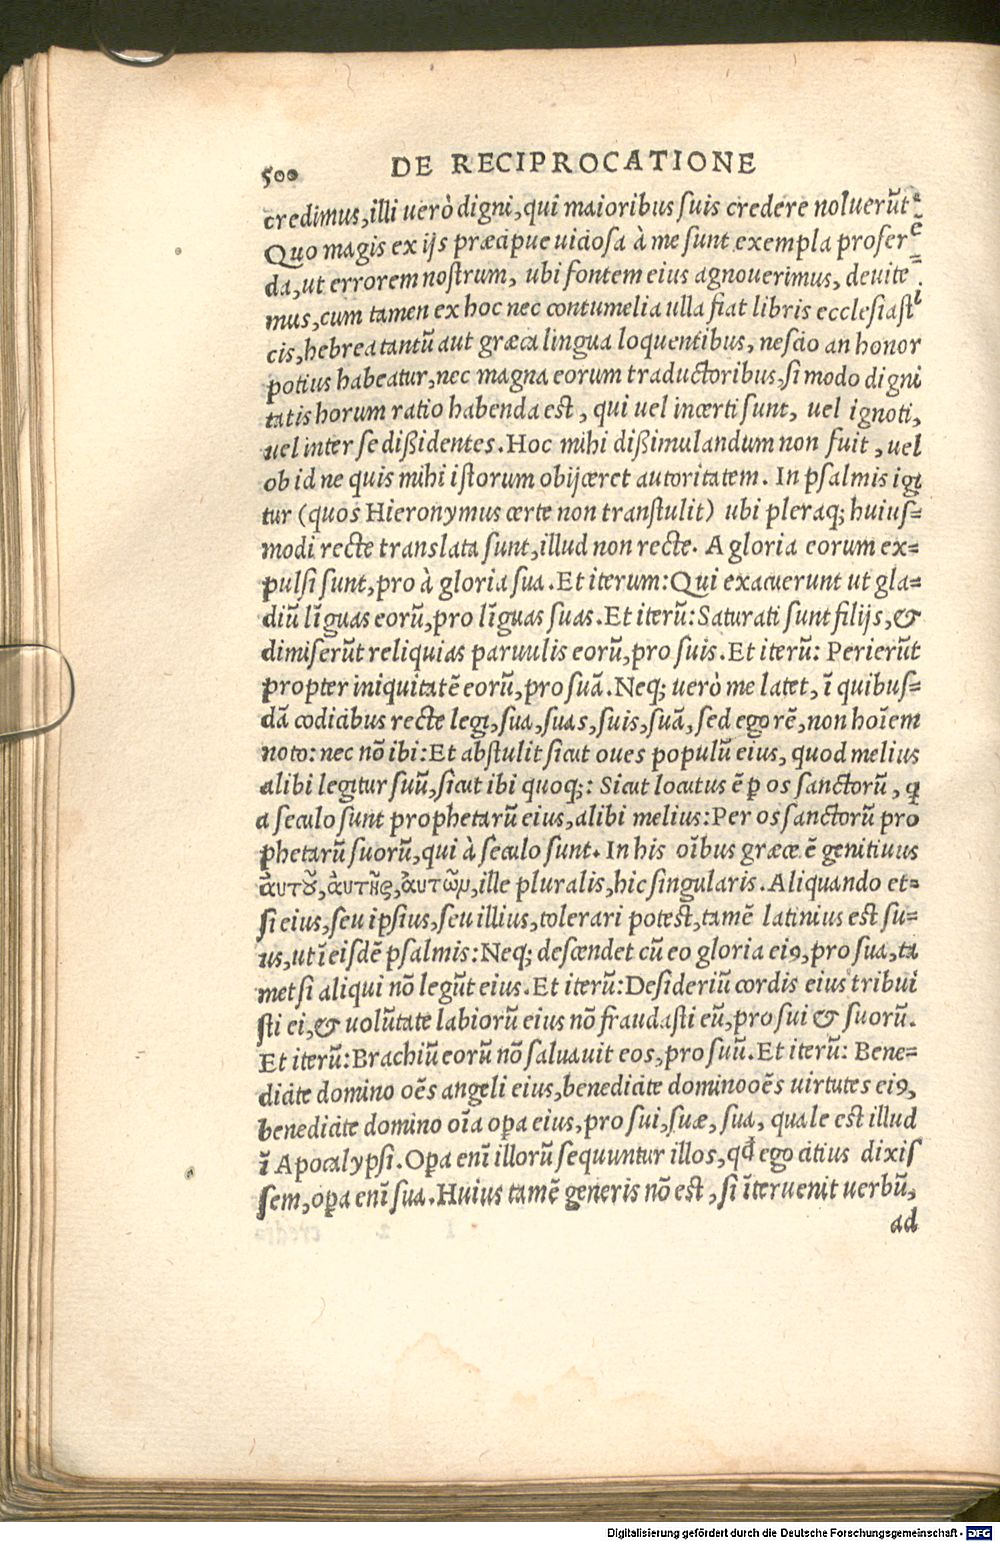 500 DE RECIPROCATIONE
credimus, illi uerò digni, qui maioribus suis credere noluerūt.
Quo magis ex ijs præcipue uiciosa à me sunt exempla proferē=
da, ut errorem nostrum, ubi fontem eius agnouerimus, deuite=
mus, cum tamen ex hoc nec contumelia ulla fiat libris ecclesiasti
cis, hebrea tantũ aut græca lingua loquentibus, nescio an honor
potius habeatur, nec magna eorum traductoribus, si modo digni
tatis horum ratio habenda est, qui uel incerti sunt, uel ignoti,
uel inter se dißidentes. Hoc mihi dißimulandum non fuit, uel
ob id ne quis mihi istorum obijceret autoritatem. In psalmis igi
tur (quos Hieronymus certe non transtulit) ubi pleraq; huius=
modi recte translata sunt, illud non recte. A gloria eorum ex=
pulsi sunt, pro à gloria sua. Et iterum: Qui exacuerunt ut gla=
diũ lĩguas eorũ, pro lĩguas suas. Et iterũ: Saturati sunt filijs, &
dimiserũt reliquias paruulis eorũ, pro suis. Et iterũ: Perierũt
propter iniquitatē eorũ, pro suã. Neq; uerò me latet, ĩ quibus=
dã codicibus recte legi, sua, suas, suis, suã, sed ego rē, non hoĩem
noto: nec nõ ibi: Et abstulit sicut oues populũ eius, quod melius
alibi legitur suũ, sicut ibi quoq;: Sicut locutus ē ꝑ os sanctorũ, q̃
a seculo sunt prophetarũ eius, alibi melius: Per os sanctorũ pro
phetarũ suorũ, qui à seculo sunt. In his oĩbus græce ē genitiuus
ἀυτοῦ, ἀυτῆς, ἀυτῶν, ille pluralis, hic singularis. Aliquando et=
si eius, seu ipsius, seu illius, tolerari potest, tamē latinius est su=
us, ut ĩ eisdē psalmis: Neq; descendet cũ eo gloria eiꝰ, pro sua, ta
metsi aliqui nõ legũt eius. Et iterũ: Desideriũ cordis eius tribui
sti ei, & uolũtate labiorũ eius nõ fraudasti eũ, pro sui & suorũ.
Et iterũ: Brachiũ eorũ nõ saluauit eos, pro suũ. Et iterũ: Bene=
dicite domino oēs angeli eius, benedicite domino oēs uirtutes eiꝰ,
benedicite domino oĩa oꝑa eius, pro sui, suæ, sua, quale est illud
ĩ Apocalypsi. Oꝑa enĩ illorũ sequuntur illos, qđ ego citius dixis
sem, oꝑa enĩ sua. Huius tamē generis nõ est, si ĩteruenit uerbũ,
ad
Digitalisierung gefördert durch die Deutsche Forschungsgemeinschaft - DFG